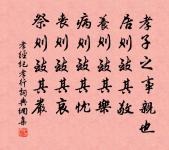 孝子之事親也
居則致其敬
養則致其樂
病則致其憂
喪則致其哀
祭則致其嚴
孝經紀孝行詞典網集